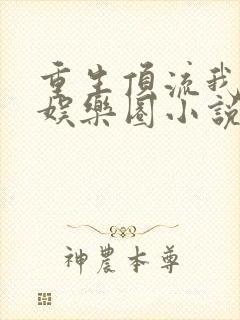 重生值流我
娱樂圈小說
神農本尊